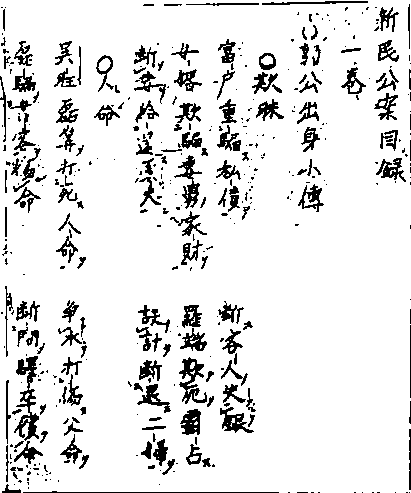 新民公案目錄
一卷
郭公出身小傳
○欺昧
富户重騙私債 断客人失銀
女婿欺騙妻舅家財 羅端欺死霸占
断妻給還原夫 設計断還二婦
○人命
吴旺磊算打死人命 争水打傷父命
磊騙 客 命 断問驛卒償命